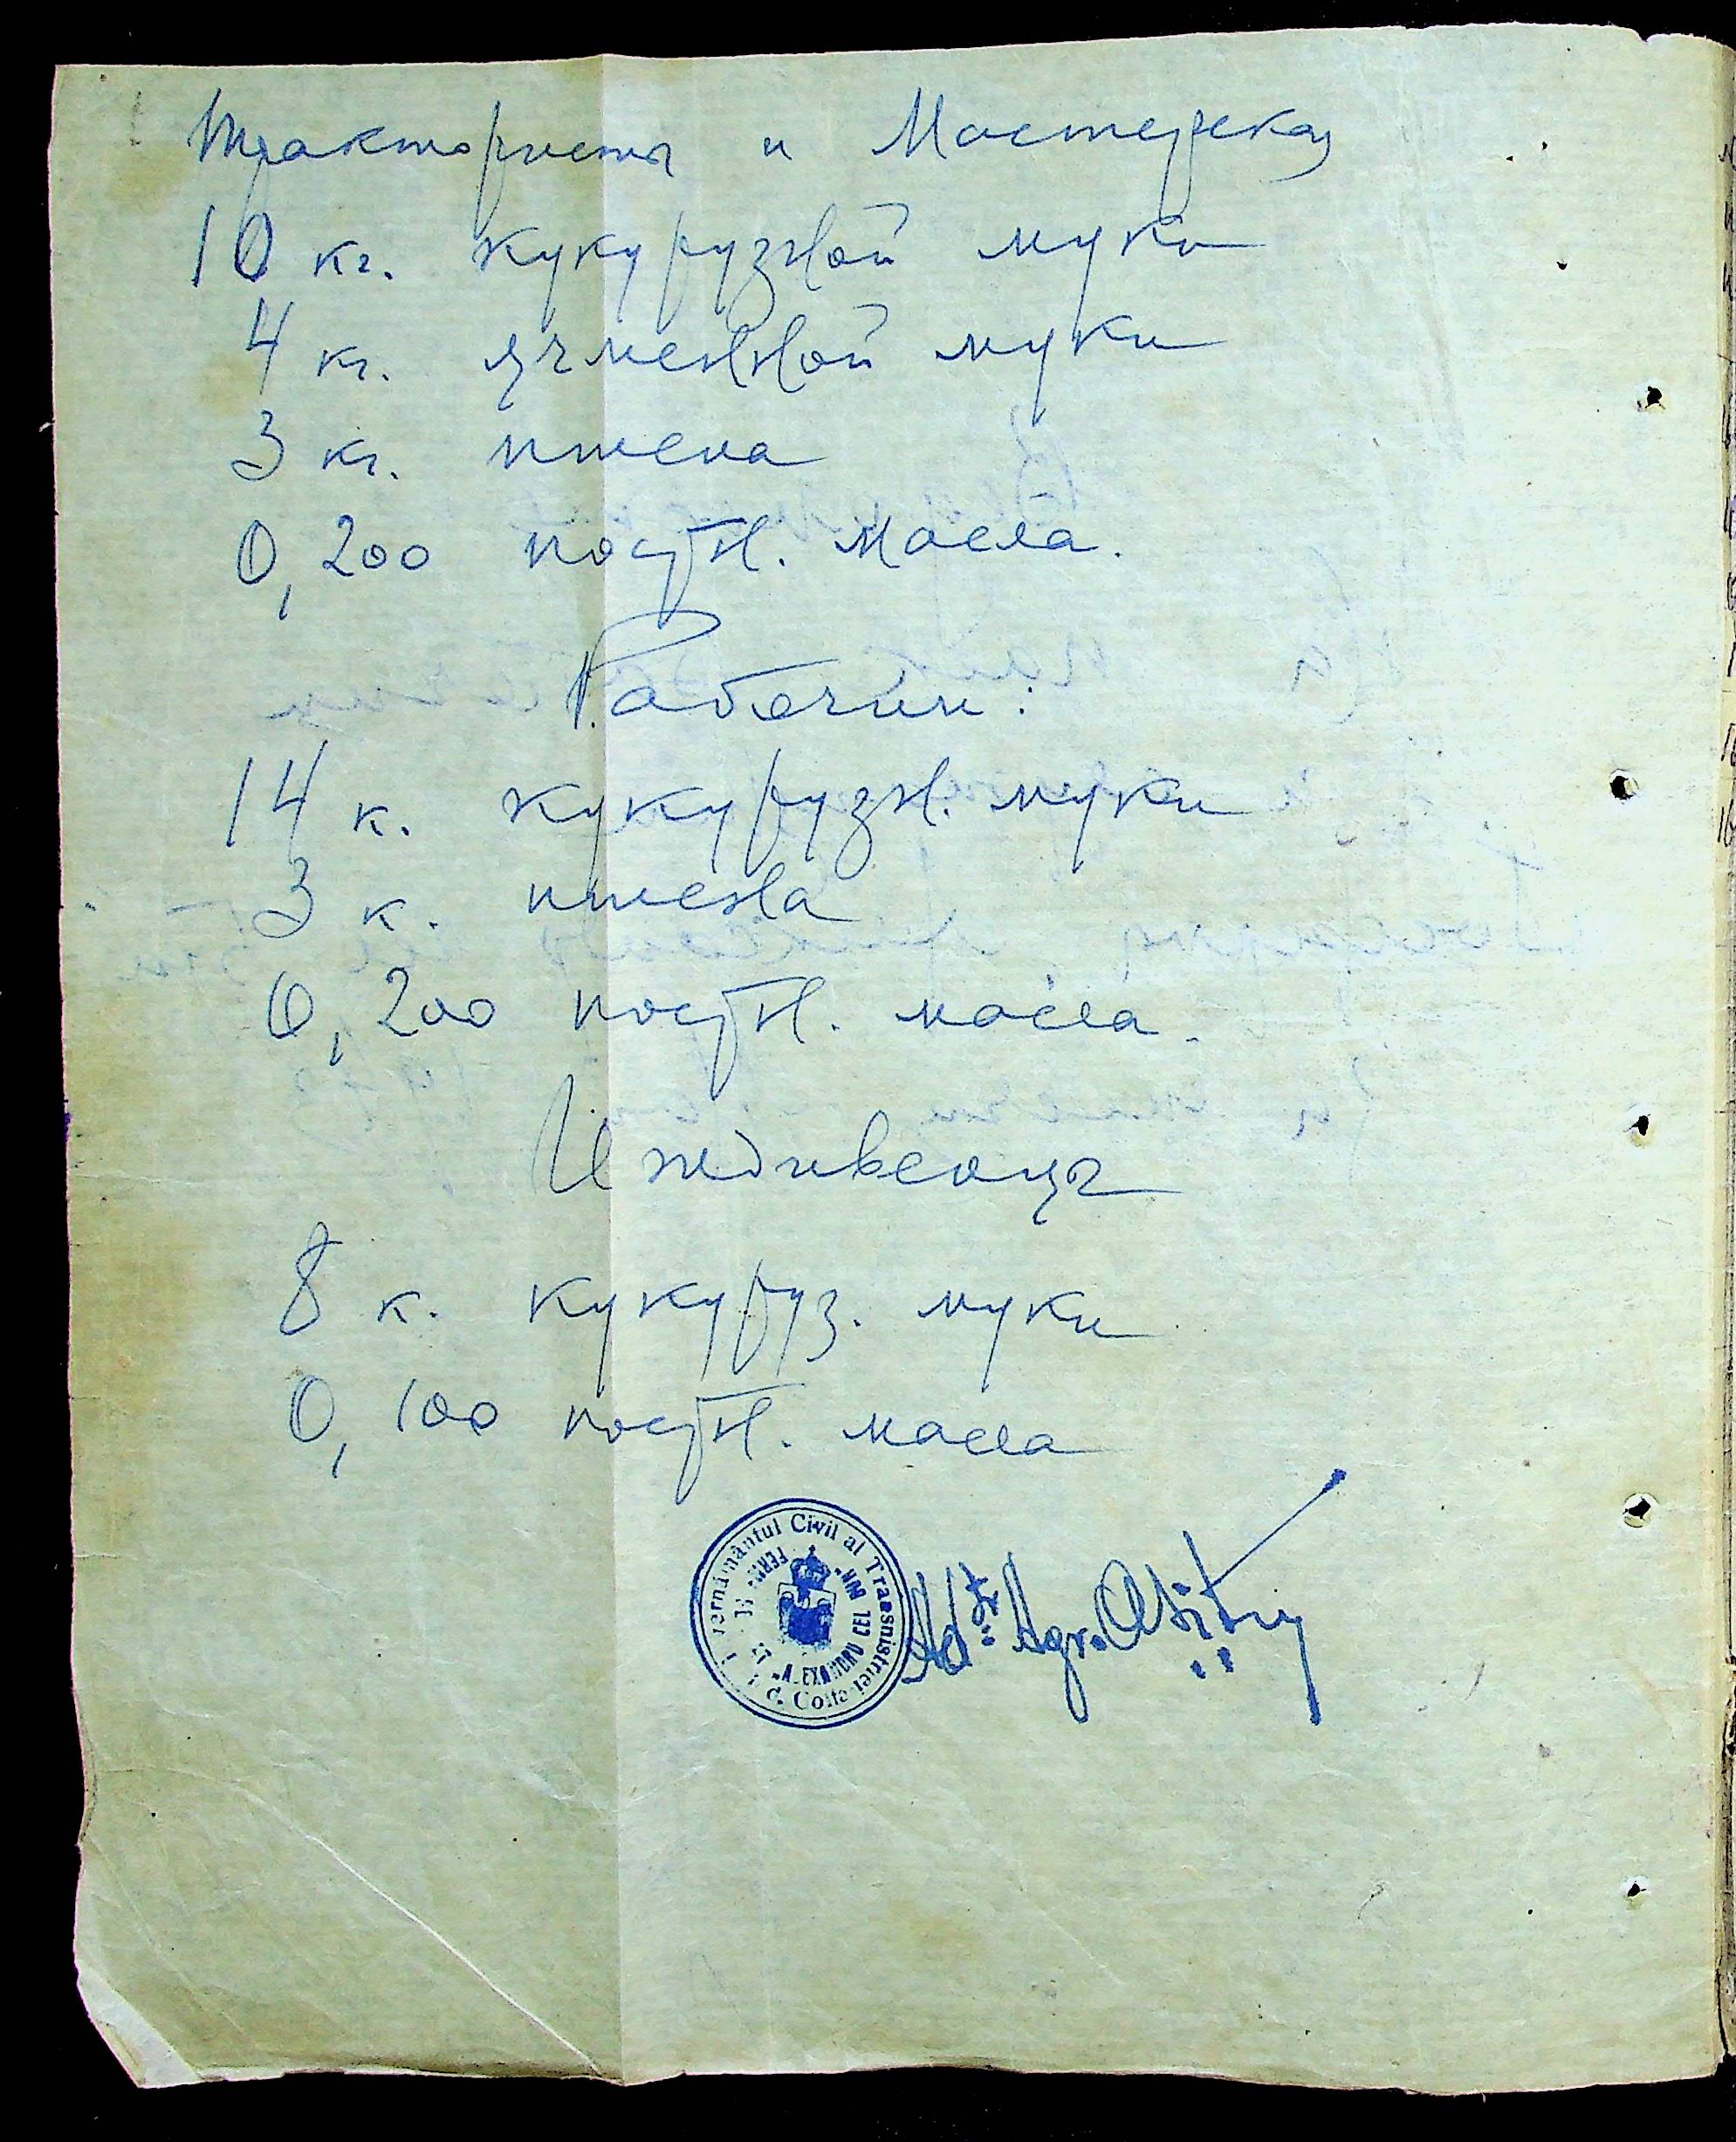 Трактористы и Мастерская
10 кг. кукурузной муки
4 кг. ячменной муки
3 кг. пшена
0,200 постн. масла.
Рабочии:
14 к. кукурузн. муки
3 к. пшена
0,200 постн. масла.
Иждивенцы
8 к. кукуруз. муки
0,100 постн. масла
vernământul Civil al Transnistriei
FERMA
ALEXANDRU CEL BUN
Adtr. Agr.